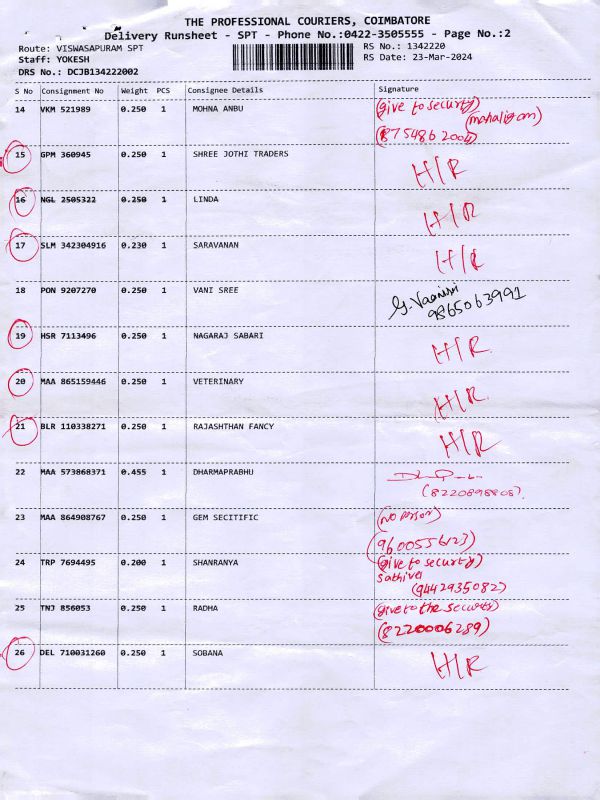 THE PROFESSIONAL COURIERS, COIMBATORE
Delivery Runsheet - SPT - Phone No.:0422-3505555 - Page No.:2
Route: VISWASAPURAM SPT RS No.: 1342220
Staff: YOKESH RS Date: 23-Mar-2024
DRS No.: DCJB134222002
S No Consignment No Weight PCS Consignee Details Signature
14 VKM 521989 0.250 1 MOHNA ANBU (give to security)
15 GPM 360945 0.250 1 SHREE JOTHI TRADERS H/R
16 NGL 2505322 0.250 1 LINDA H/R
17 SLM 342304916 0.230 1 SARAVANAN H/R
18 PON 9207270 0.250 1 VANI SREE
9865063991
19 HSR 7113496 0.250 1 NAGARAJ SABARI H/R
20 MAA 865159446 0.250 1 VETERINARY H/R
21 BLR 110338271 0.250 1 RAJASHTHAN FANCY H/R
22 MAA 573868371 0.455 1 DHARMAPRABHU
(8220898808)
23 MAA 864908767 0.250 1 GEM SECITIFIC (no person)
(9600556123)
24 TRP 7694495 0.200 1 SHANRANYA (give to security)
(9442935082)
25 TNJ 856053 0.250 1 RADHA (give to the security)
(8220006289)
26 DEL 710031260 0.250 1 SOBANA H/R